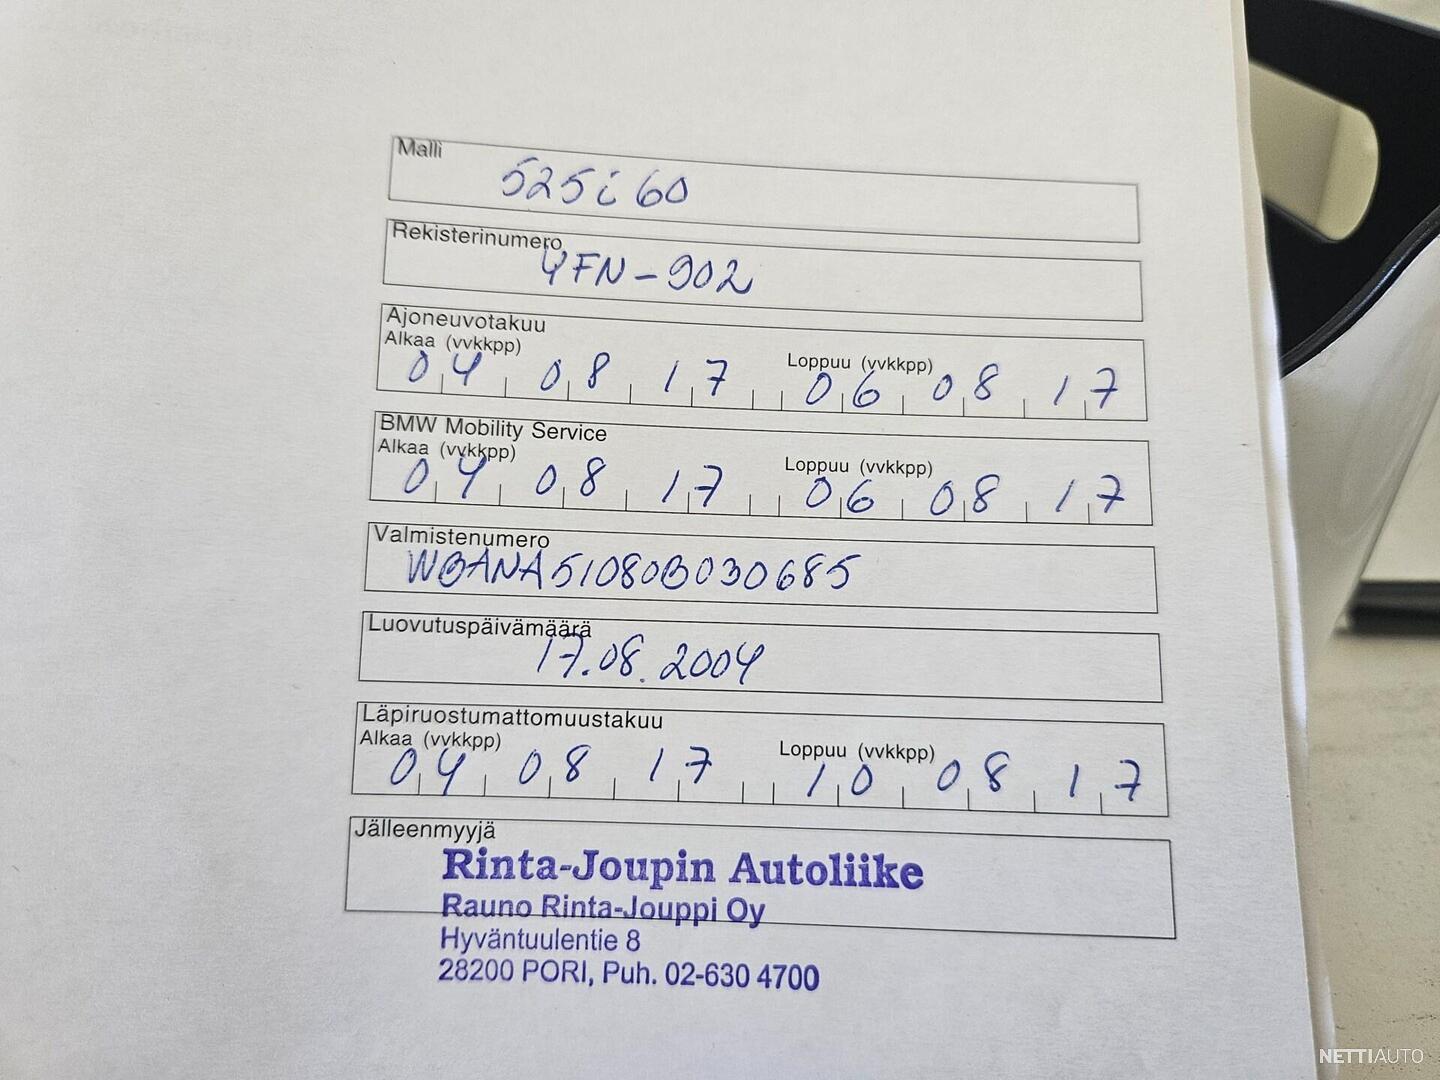 Malli
525i 60
Rekisterinumero
YFN-902
Ajoneuvotakuu
Alkaa (vvkkpp) Loppuu (vvkkpp)
04 08 17 06 08 17
BMW Mobility Service
Alkaa (vvkkpp) Loppuu (vvkkpp)
04 08 17 06 08 17
Valmistenumero
WBANA51080B030685
Luovutuspäivämäärä
17.08.2004
Läpiruostumattomuustakuu
Alkaa (vvkkpp) Loppuu (vvkkpp)
04 08 17 10 08 17
Jälleenmyyjä
Rinta-Joupin Autoliike
Rauno Rinta-Jouppi Oy
Hyväntuulentie 8
28200 PORI, Puh. 02-630 4700
NETTIAUTO